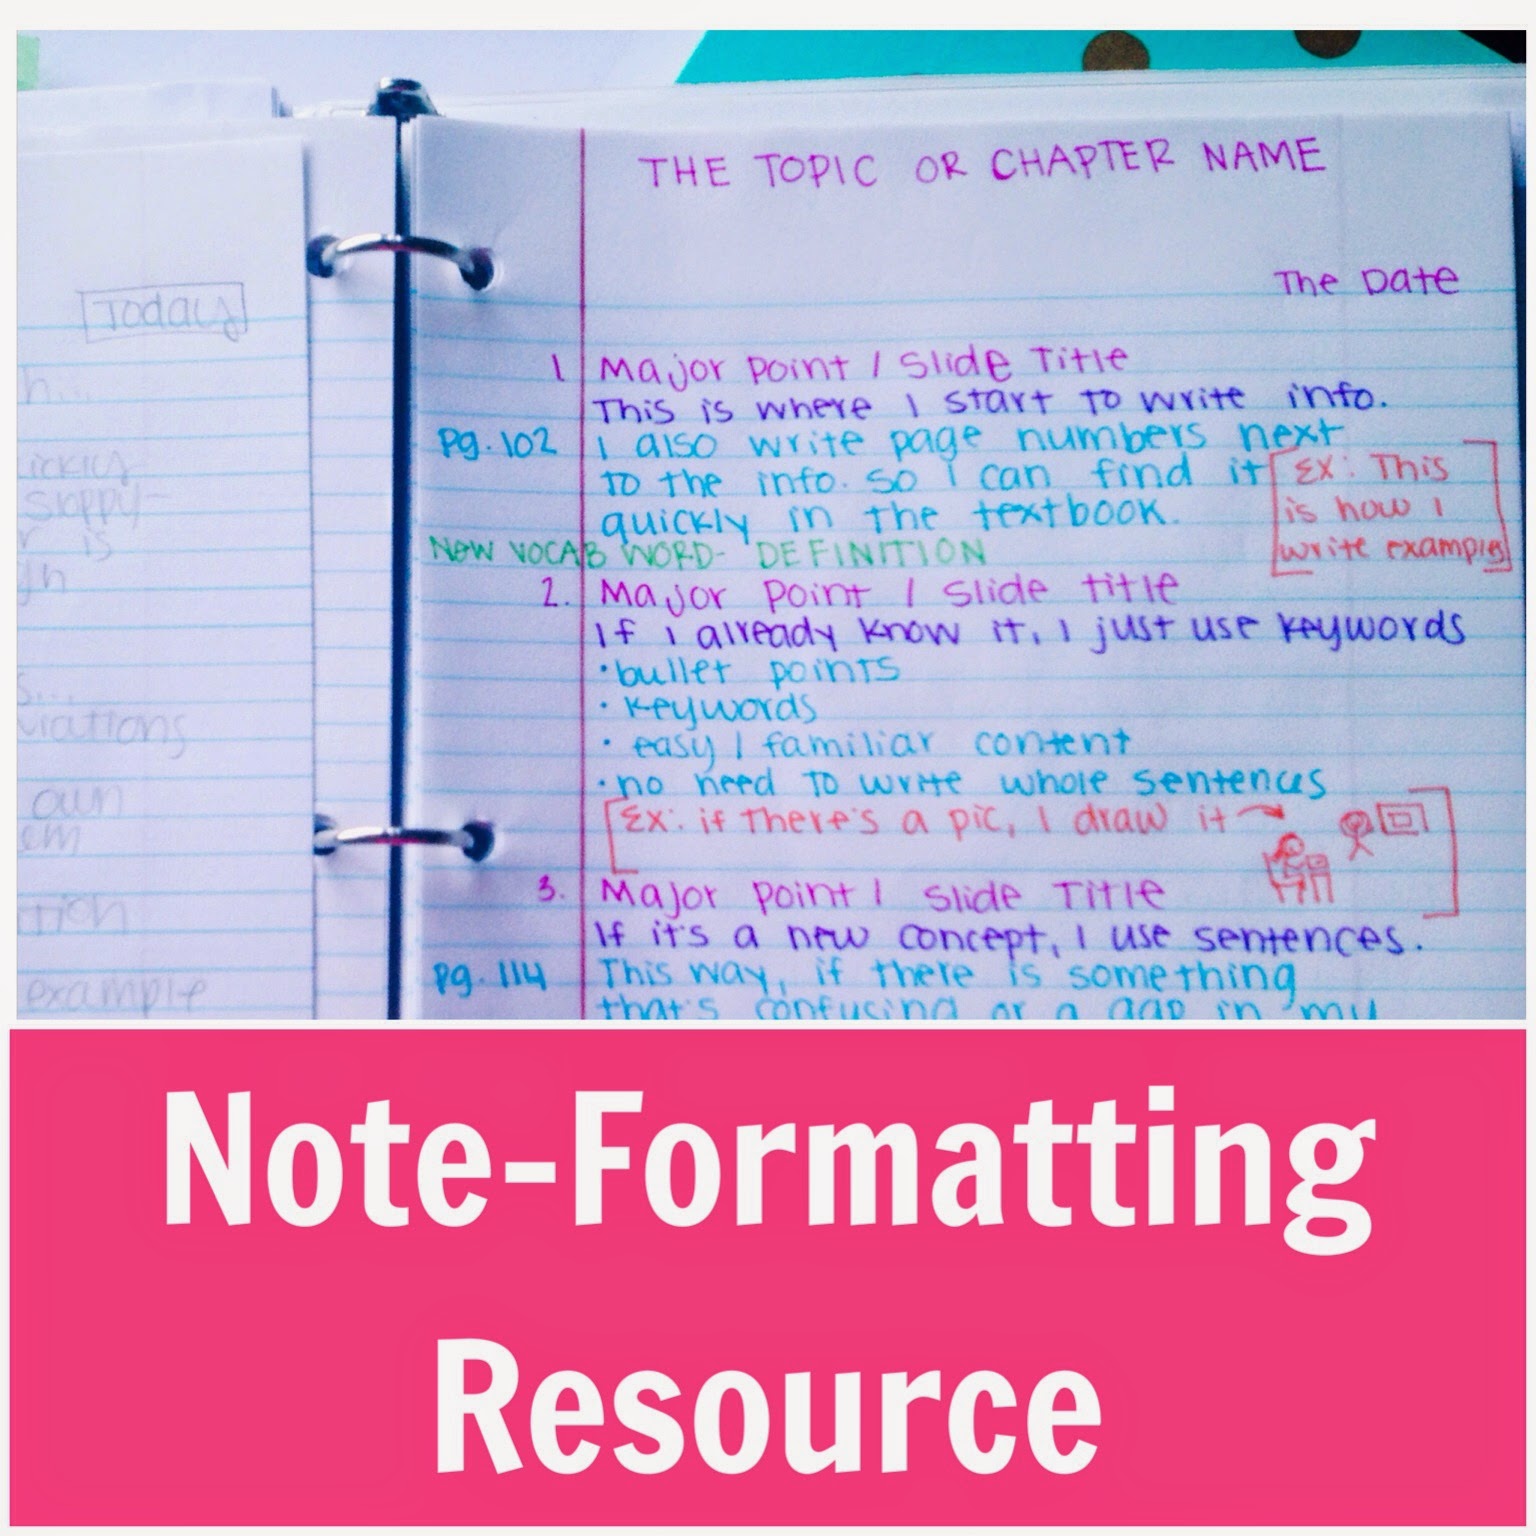 Today
THE TOPIC OR CHAPTER NAME
The Date
1 Major Point / Slide Title
This is where I start to write info.
Pg. 102 I also write page numbers next
to the info. so I can find it
quickly in the textbook.
[Ex: This
is how I
write examples]
New VOCAB WORD- DEFINITION
2. Major Point / Slide title
If I already know it, I just use keywords
• bullet points
• keywords
• easy / familiar content
• no need to write whole sentences
[Ex: if there's a pic, I draw it → ]
3. Major Point / Slide Title
If it's a new concept, I use sentences.
Pg. 114 This way, if there is something
that's confusing or a gap in my
own
example
Note-Formatting
Resource